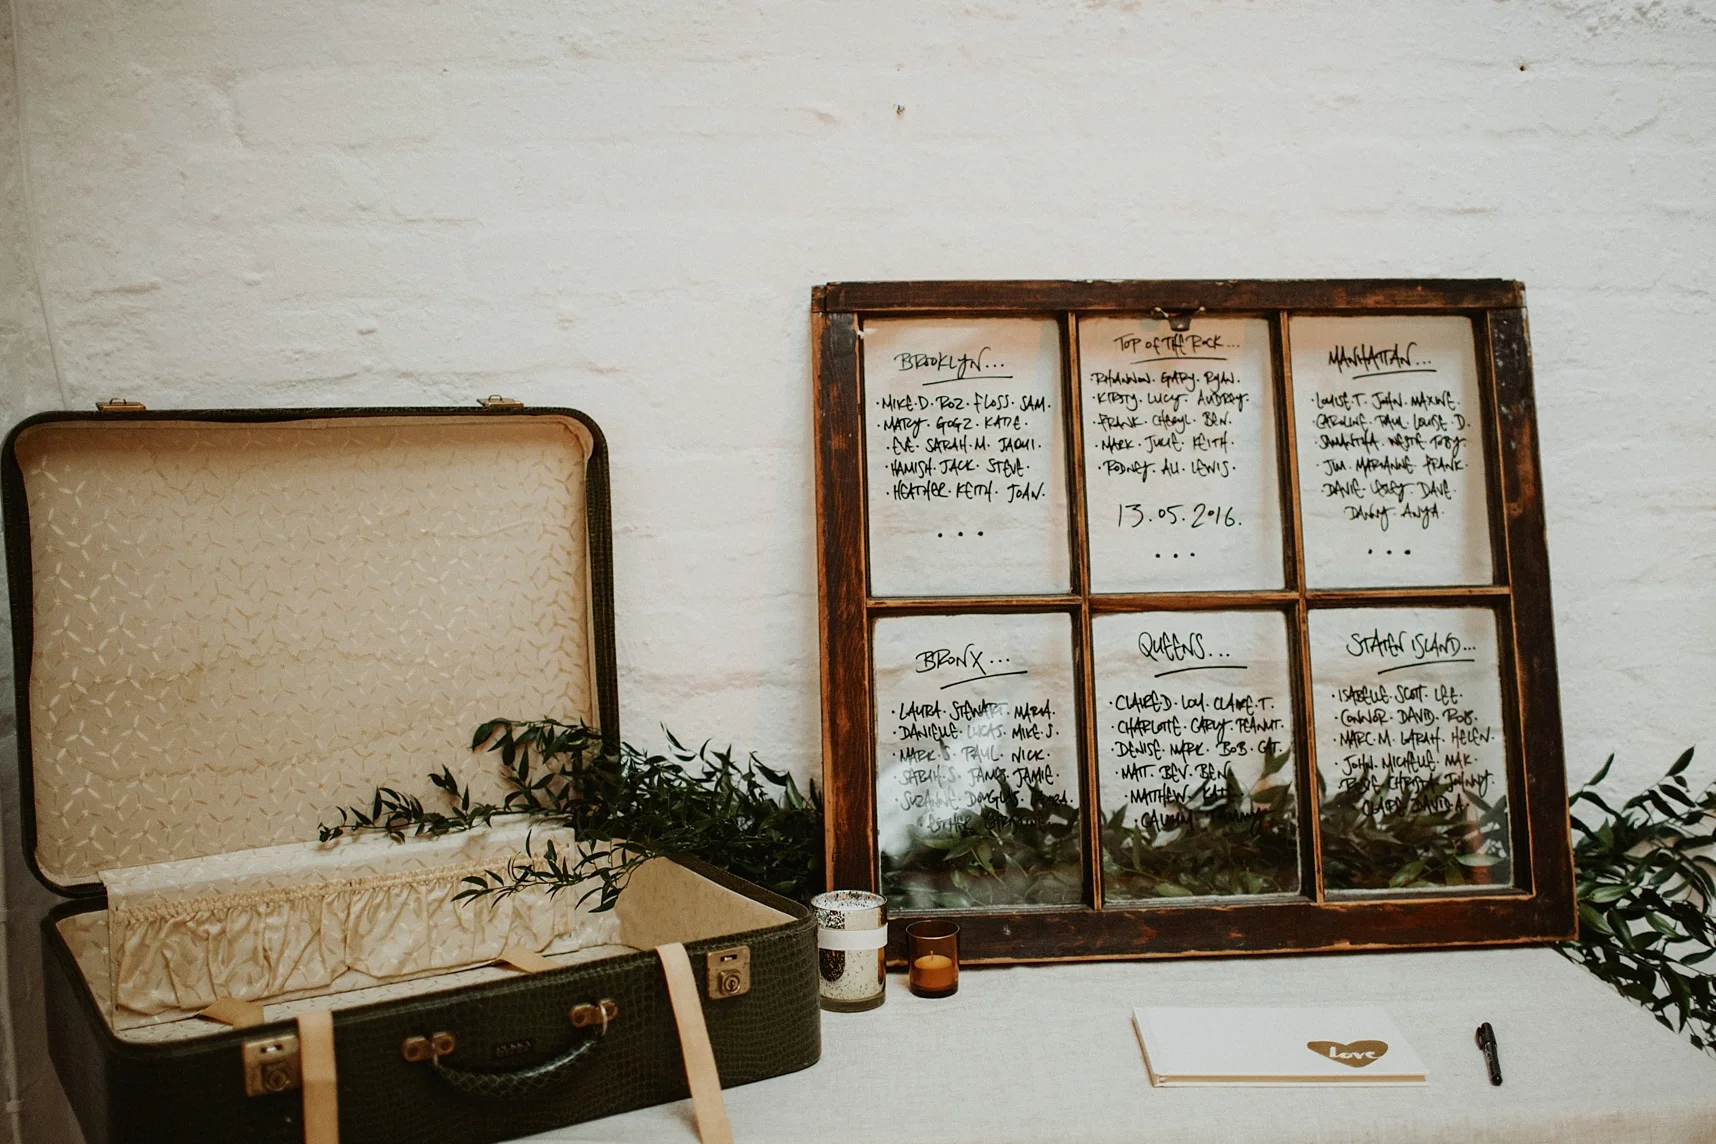 BROOKLYN...
· MIKE D · ROZ · FLOSS · SAM ·
· MARY · GOGZ · KATIE ·
· EVE · SARAH M · JACQUI ·
· HAMISH · JACK · STEVE ·
· HEATHER · KEITH · JOAN ·
...
TOP OF THE ROCK...
· RHIANNON · GARY · RYAN ·
· KIRSTY · LUCY · AUDREY ·
· FRANK · CHERYL · BEN ·
· MARK · JULIE · KEITH ·
· RODNEY · ALI · LEWIS ·
13.05.2016.
...
MANHATTAN...
· LOUISE T · JOHN · MAXINE ·
· CAROLINE · PAUL · LOUISE D ·
· SAMANTHA · TOBY ·
· JIM · MARIANNE · FRANK ·
· DAVIE · LESLEY · DAVE ·
DANNY · ANYA ·
...
BRONX...
· LAURA · STEWART · MARIA ·
· DANIELLE · LUCAS · MIKE S ·
· MARK S · PAUL · NICK ·
· SARAH S · JAMES · JAMIE ·
· SUZANNE · DOUGLAS ·
· ESTHER ·
QUEENS...
· CLAIRE D · LOU · CLAIRE T ·
· CHARLOTTE · CARLY · PEANUT ·
· DENISE · MARK · BOB · CAT ·
· MATT · BEV · BEN ·
· MATTHEW ·
· CALUM · TOMMY
STATEN ISLAND...
· ISABELLE · SCOTT · LEE ·
· CONNOR · DAVID · ROB ·
· MARC M · LARAH · HELEN ·
· JOHN · MICHELLE · MAK ·
· CHRISTA · JOHNNY ·
CLAIRE · DAVID A ·
love